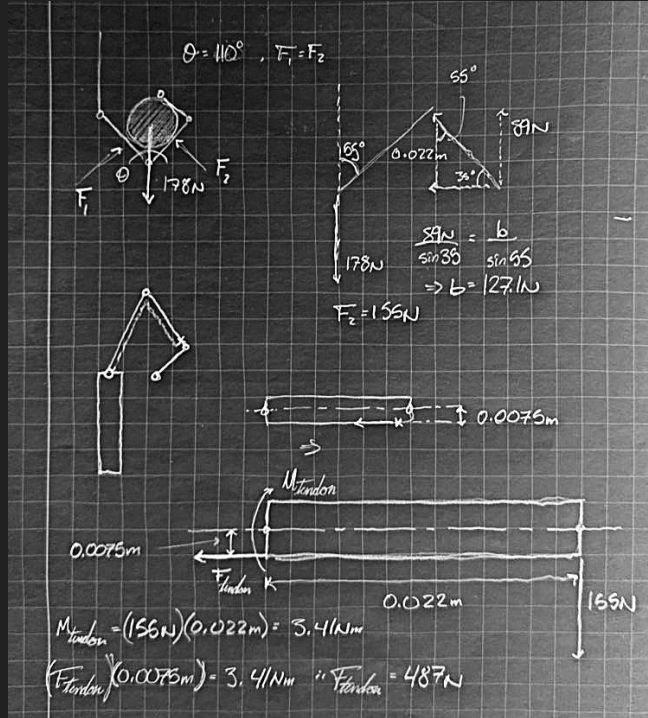 θ = 110° , F₁ = F₂
55°
89N
55°
0.022m
35°
F₂
θ
178N
F₁
89N/sin35 = b/sin55
178N
⇒ b = 127.1N
F₂ = 155N
0.0075m
⇒
Mtendon
0.0075m
Ftendon
0.022m
155N
Mtendon = (155N)(0.022m) = 3.41Nm
(Ftendon)(0.0075m) = 3.41Nm ∴ Ftendon = 487N